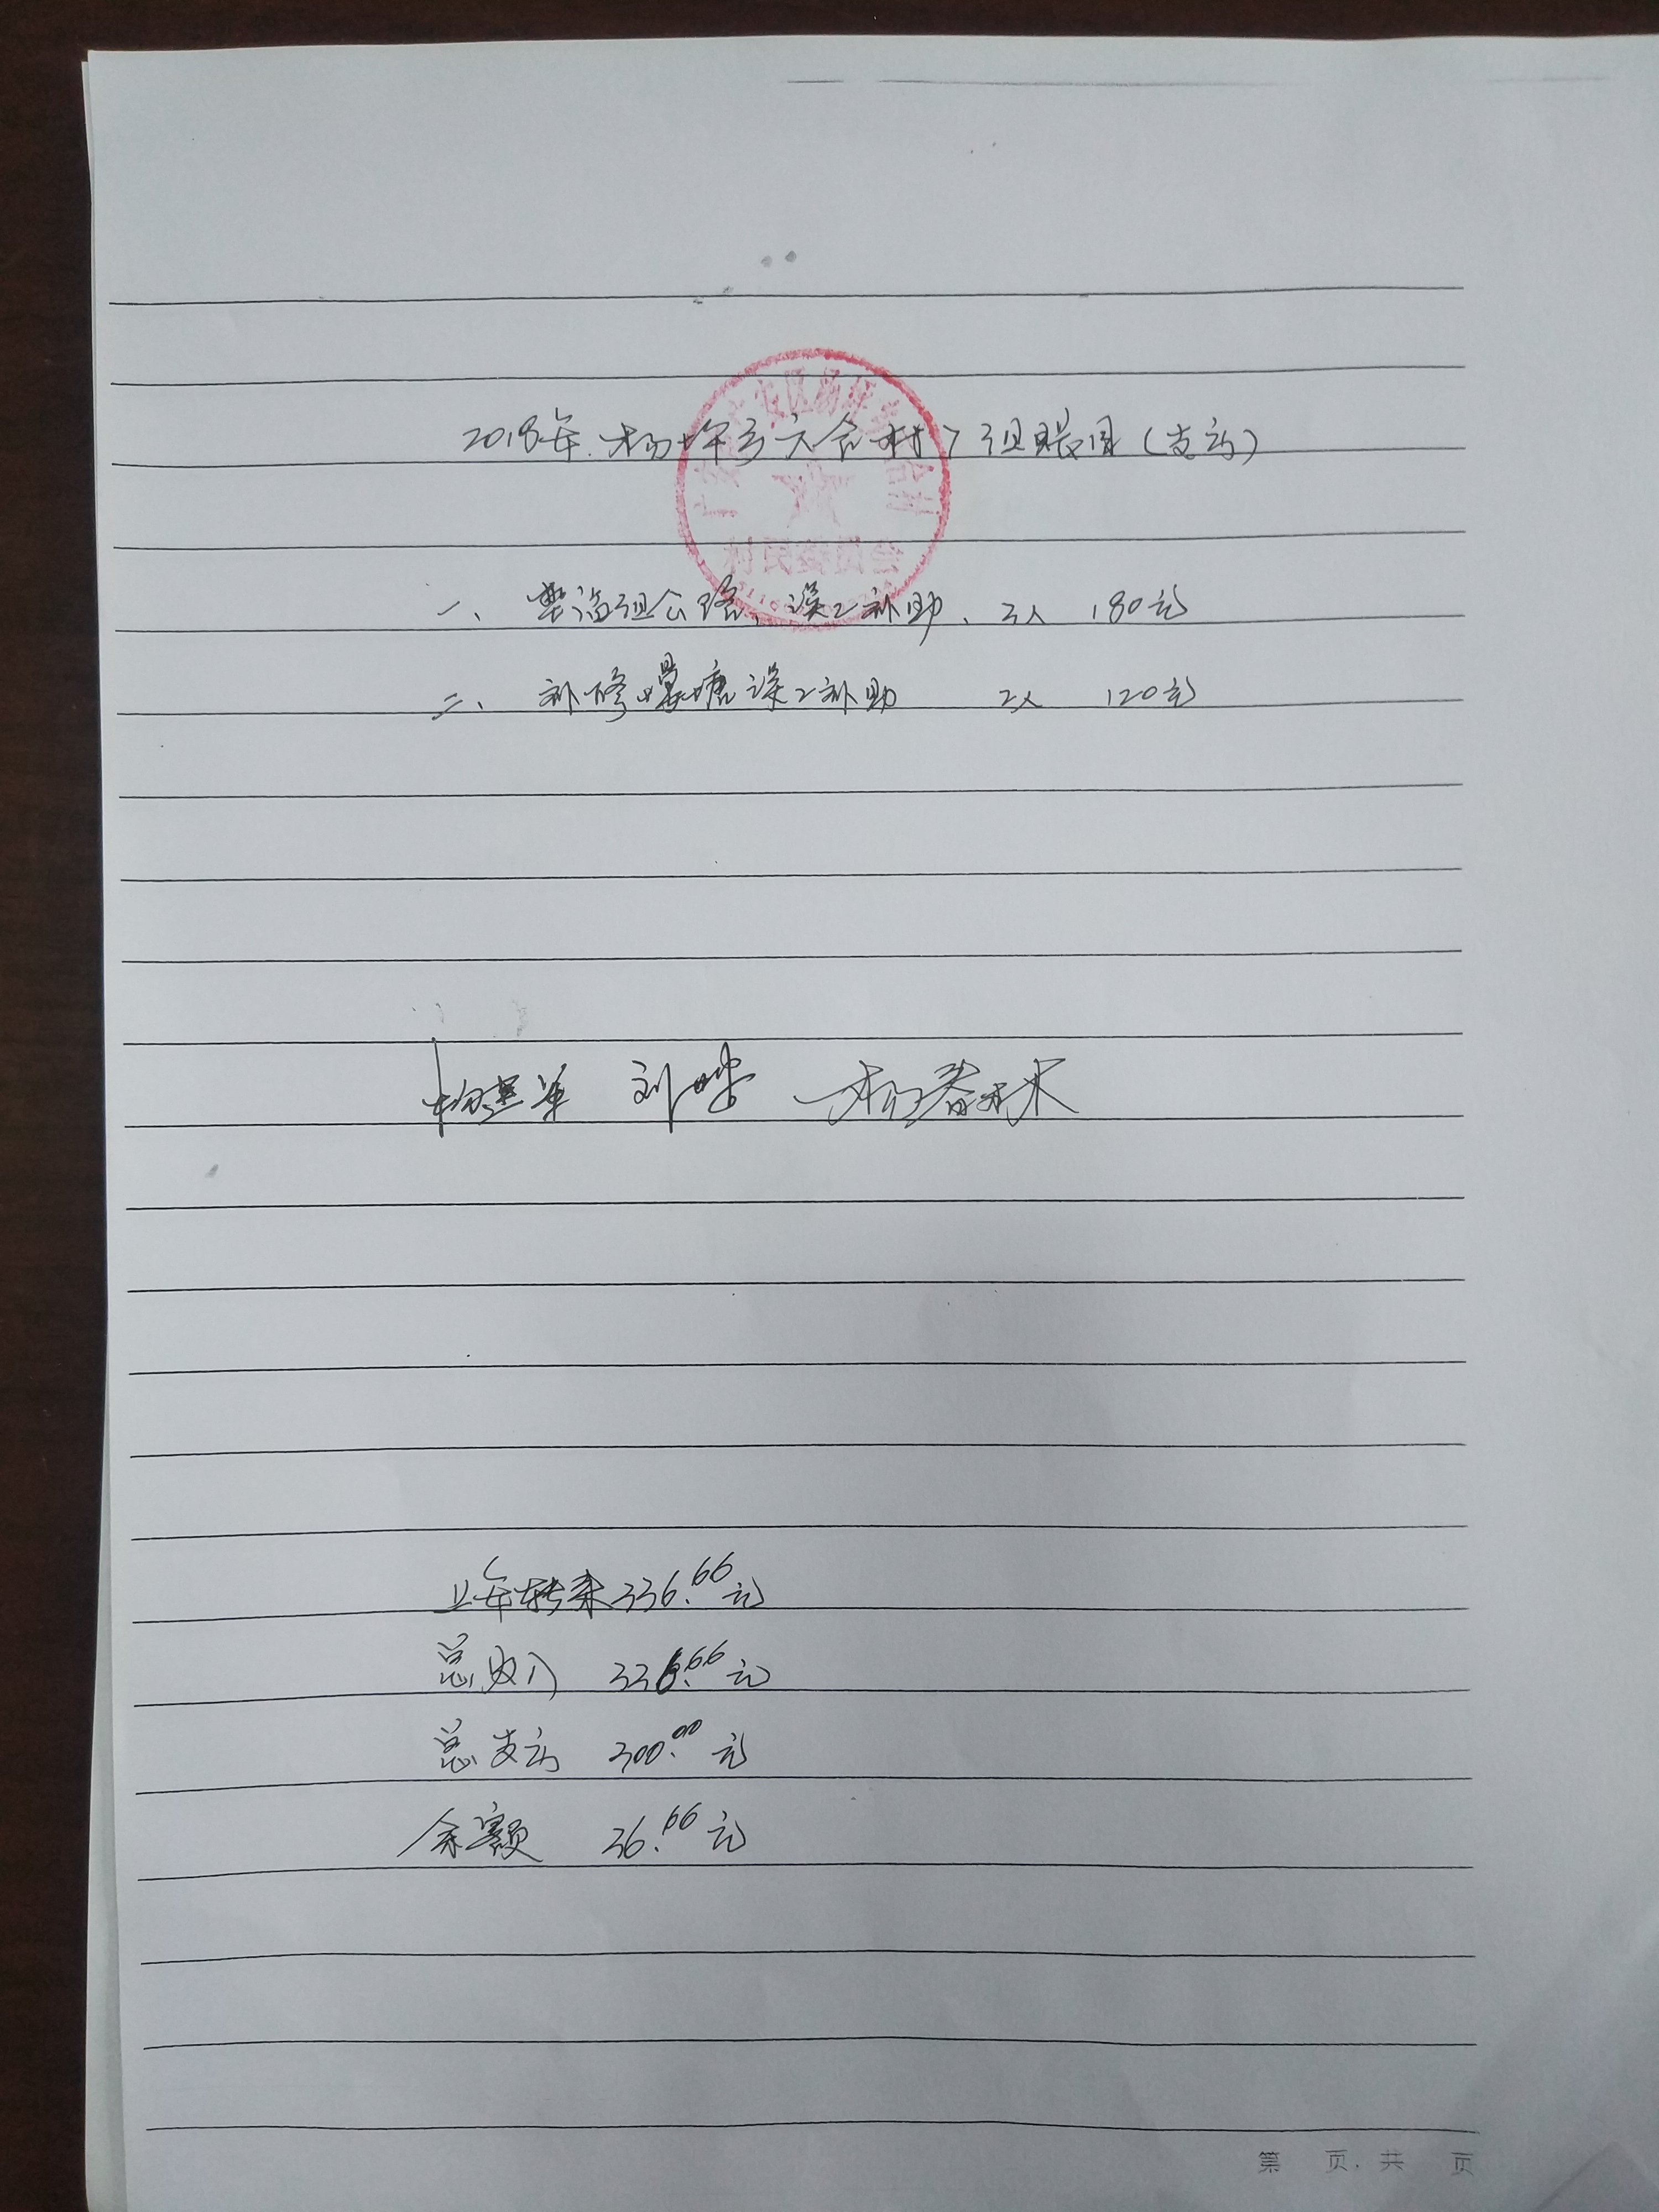 2018年.杨坪乡六合村7组账目（支出）
村民委员会
一、整治组公路、误工补助、3人 180元
二、补修堰塘误工补助 2人 120元
刘 杨春
上年转来336.66元
总收入 336.66元
总支出 300.00元
余额 36.66元
第 页.共 页